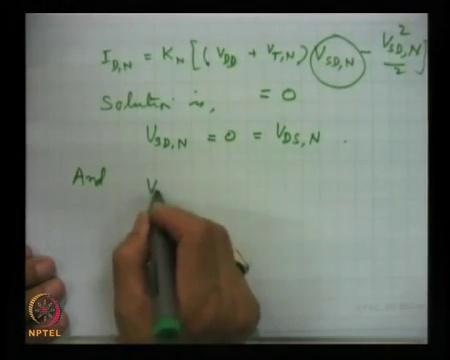 I_{D,N} = K_N [(V_{DD} + V_{T,N}) V_{SD,N} - \frac{V_{SD,N}^2}{2}]
Solution is, = 0
V_{SD,N} = 0 = V_{DS,N} .
And V
NPTEL